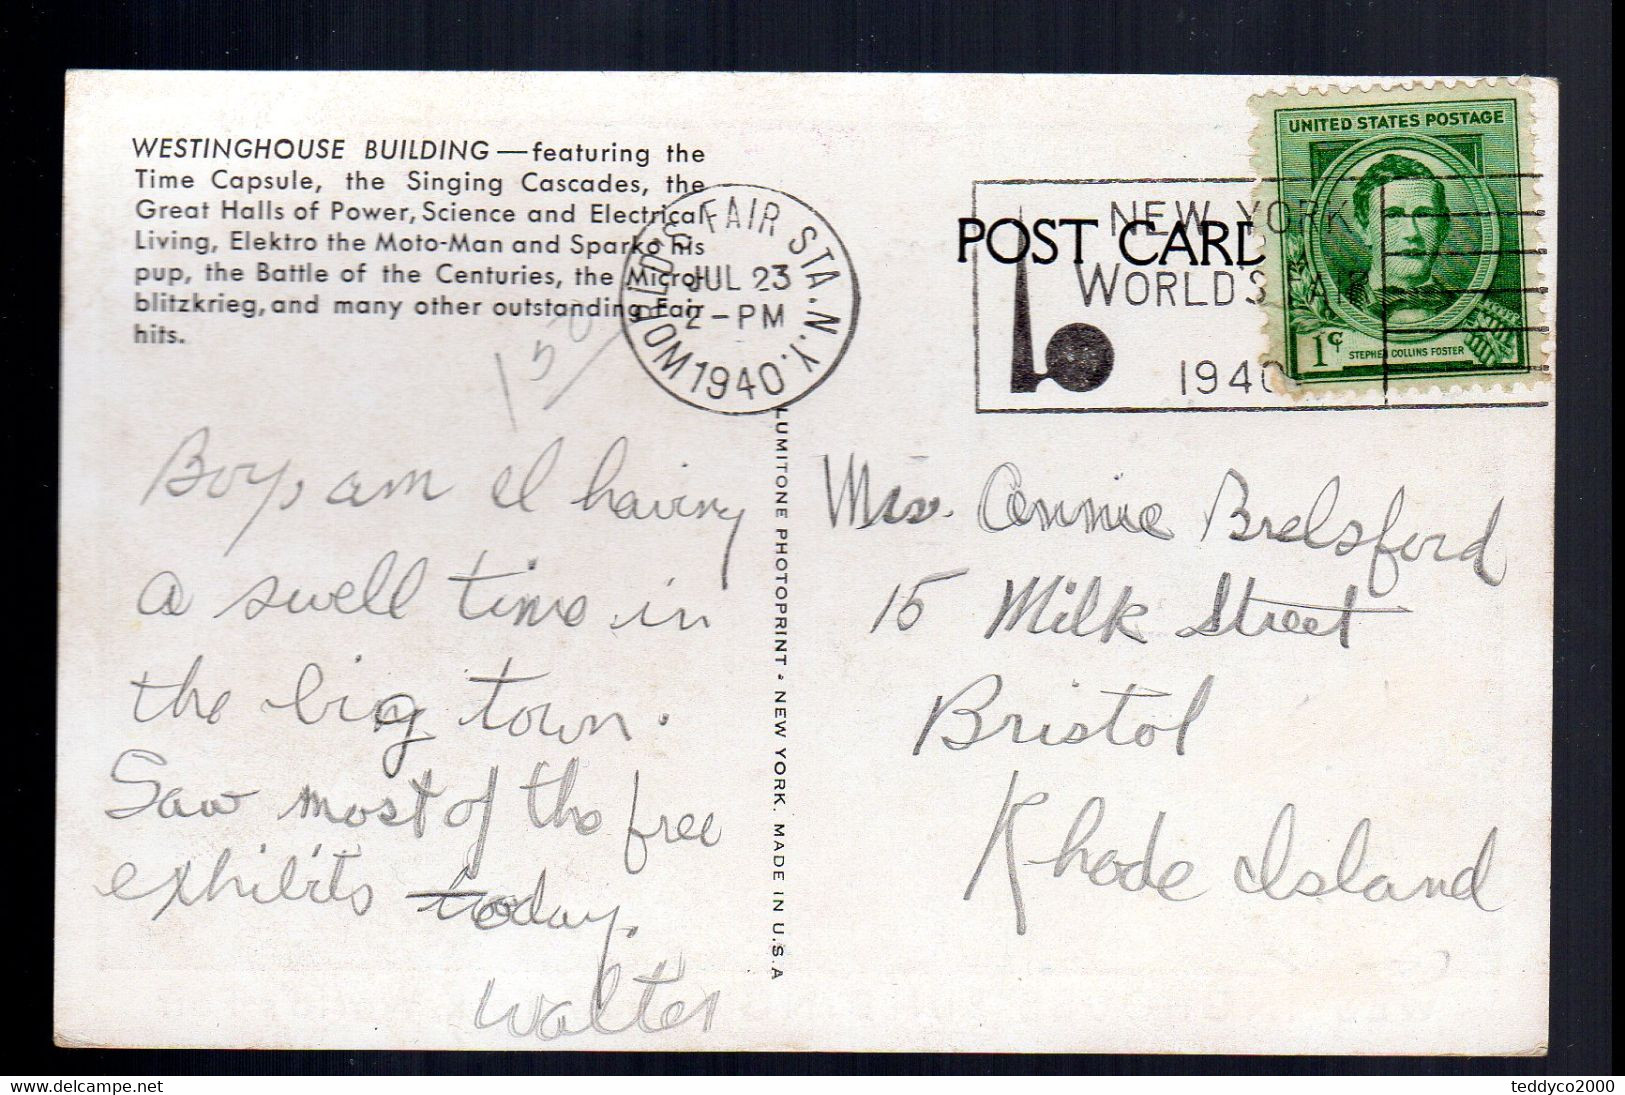 WESTINGHOUSE BUILDING — featuring the
Time Capsule, the Singing Cascades, the
Great Halls of Power, Science and Electrical
Living, Elektro the Moto-Man and Sparko his
pup, the Battle of the Centuries, the Micro-
blitzkrieg, and many other outstanding Fair
hits.
WORLD'S FAIR STA. N.Y.
JUL 23
2-PM
1940
POST CARD
NEW YORK
WORLD'S FAIR
1940
UNITED STATES POSTAGE
1¢
STEPHEN COLLINS FOSTER
Boy, am I having
a swell time in
the big town.
Saw most of the free
exhibits today.
Walter
LUMITONE PHOTOPRINT • NEW YORK. MADE IN U.S.A
Annie Brelsford
15 Milk Street
Bristol
Rhode Island
teddyco2000